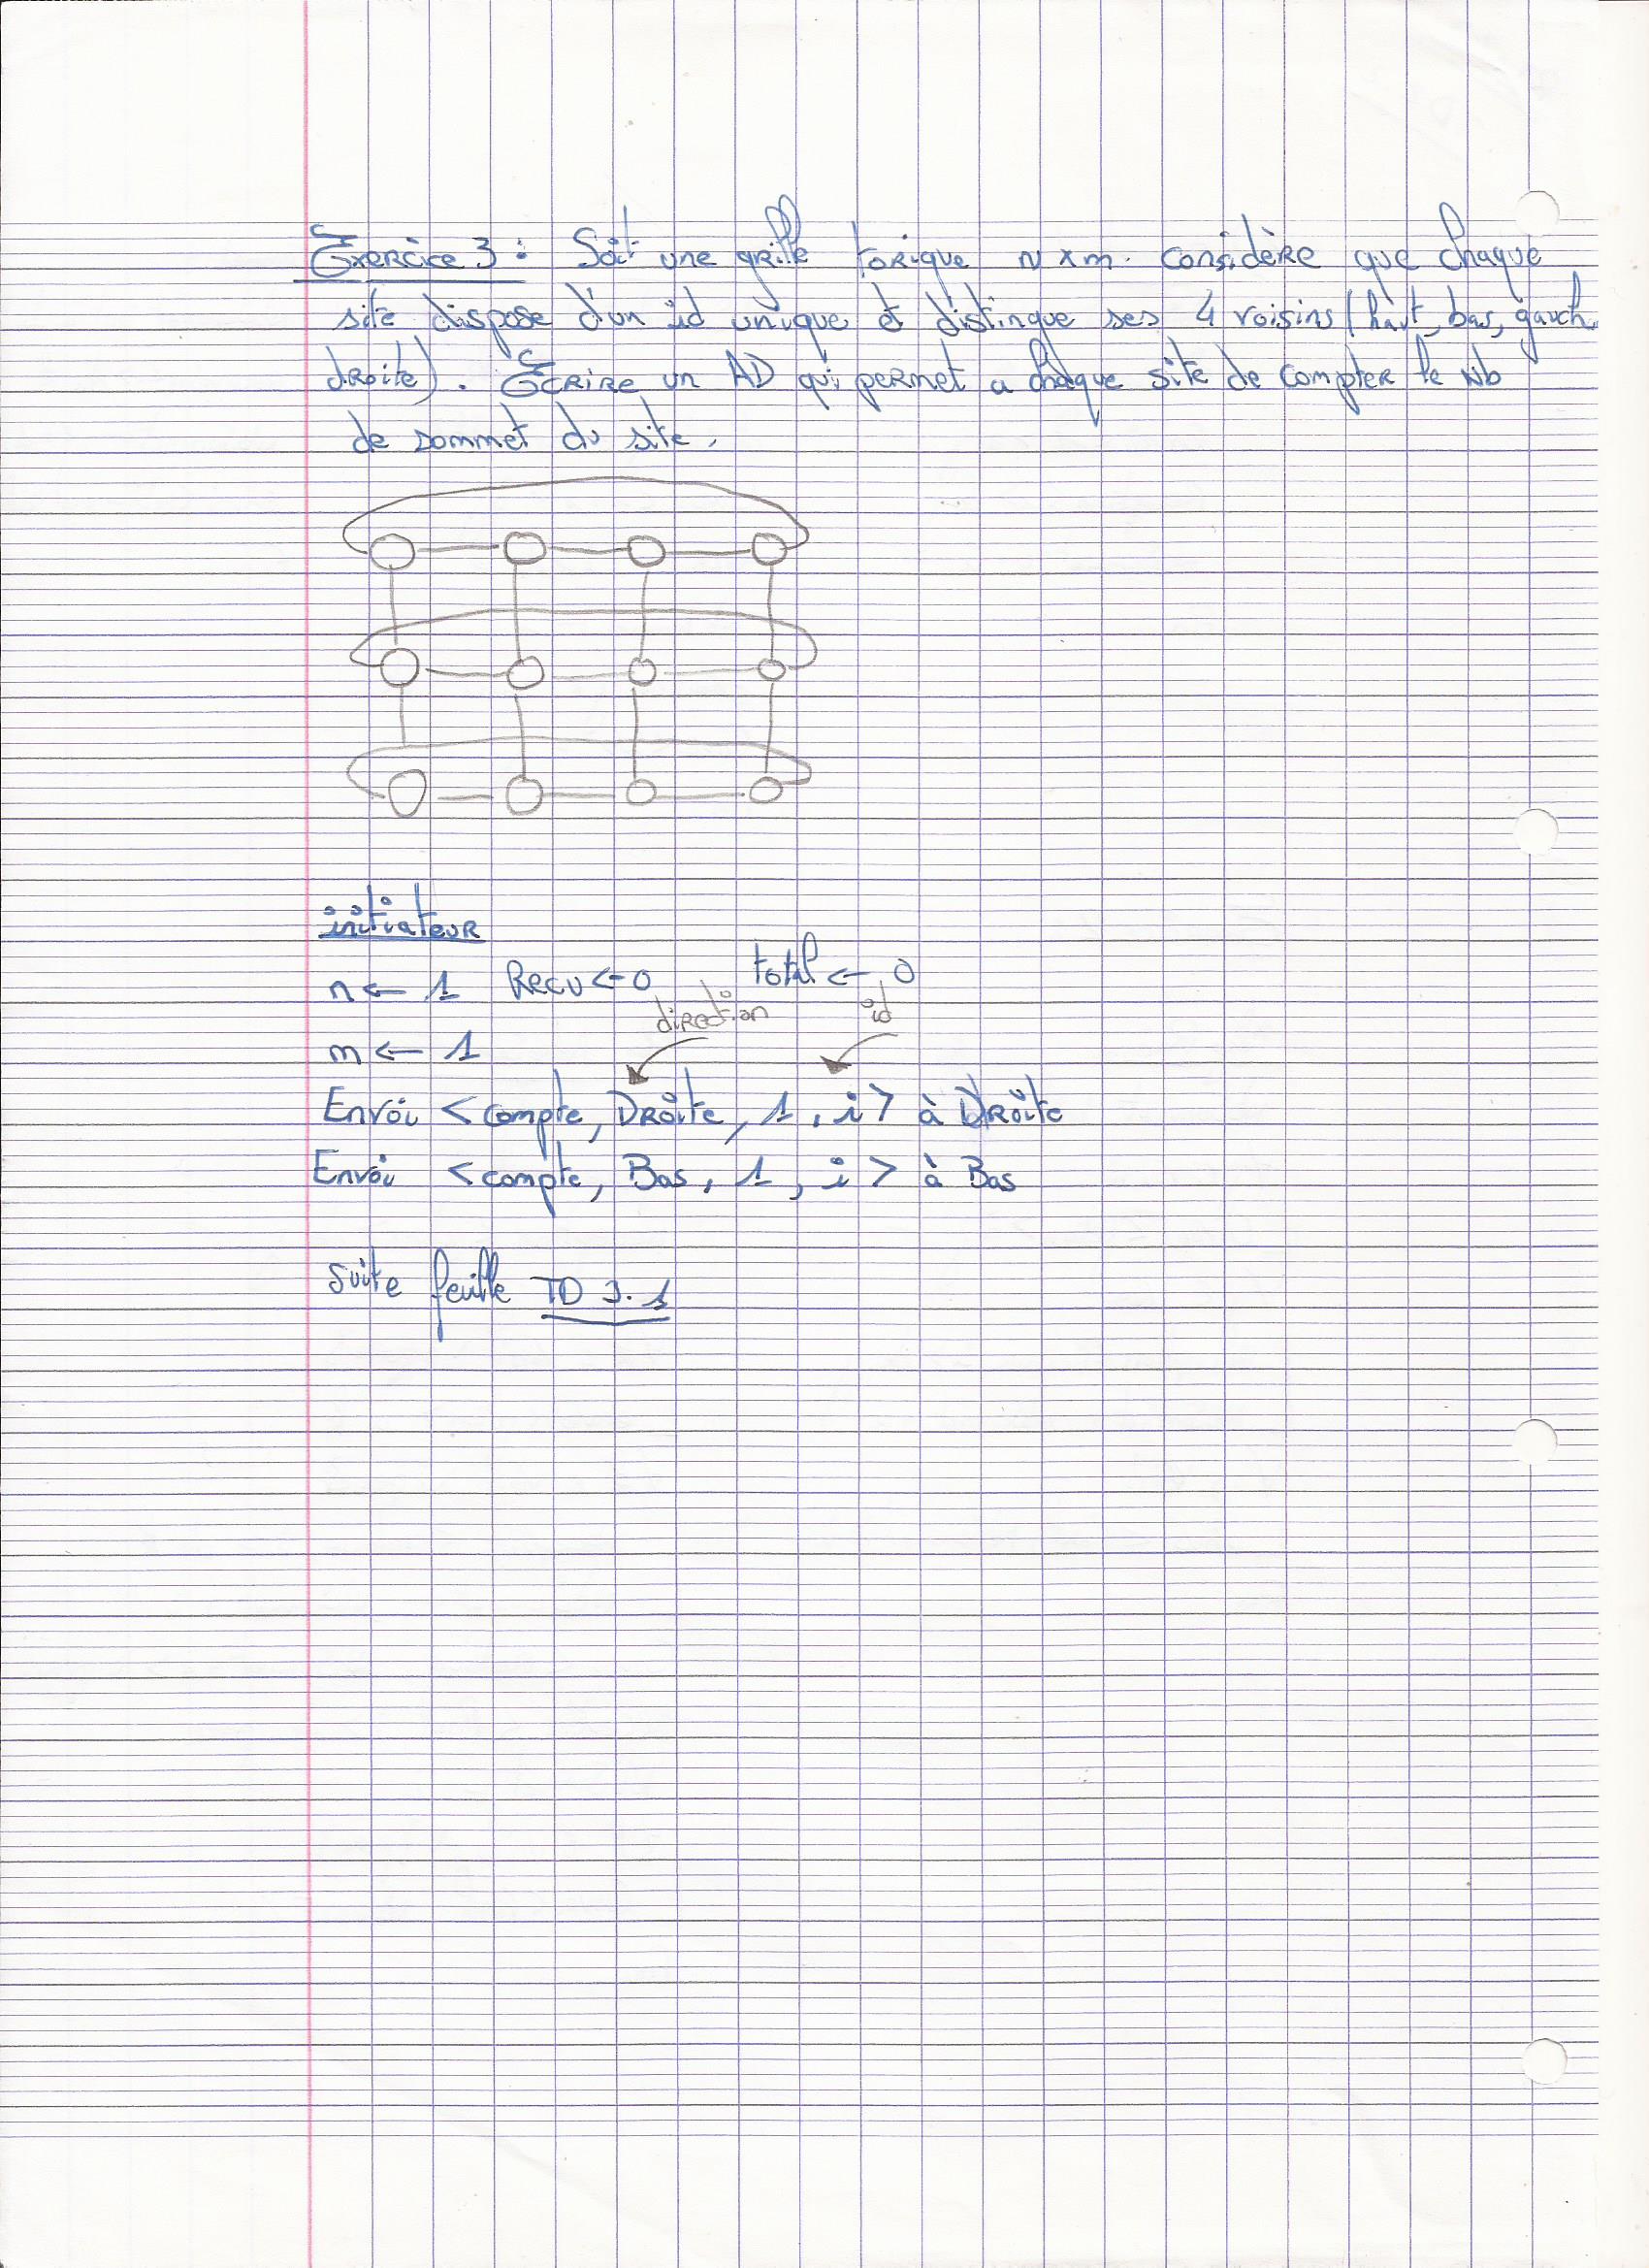 Exercice 3 : Soit une grille torique n x m. considère que chaque
site dispose d'un id unique et distingue ses 4 voisins (haut, bas, gauch
droite). Écrire un AD qui permet a chaque site de compter le Nb
de sommet du site.
initiateur
n ← 1 Recu ← 0 total ← 0
direction id
m ← 1
Envoi < compte, Droite, 1, i > à Droite
Envoi < compte, Bas, 1, i > à Bas
suite feuille TD 3.1